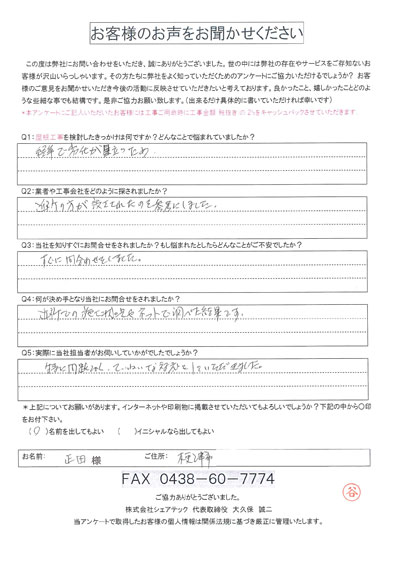 お客様のお声をお聞かせください
この度は弊社にお問い合わせをいただき、誠にありがとうございました。世の中には弊社の存在やサービスをご存知ないお
客様が沢山いらっしゃいます。その方たちに弊社をよく知っていただくためのアンケートにご協力いただけるでしょうか? お客
様のご意見をお聞かせいただき今後の活動に反映させていきたいと考えております。良かったこと、嬉しかったことどのよ
うな些細な事でも結構です。是非ご協力お願い致します。(出来るだけ具体的に書いていただければ幸いです)
*本アンケートにご記入いただいたお客様には工事ご用命時に工事金額 税抜き の 2%をキャッシュバックさせていただきます。
Q1:屋根工事を検討したきっかけは何ですか?どんなことで悩まれていましたか?
経年で劣化が目立つため
Q2:業者や工事会社をどのように探されましたか?
近所の方が施工されたのを参考にしました。
Q3:当社を知りすぐにお問合せをされましたか?もし悩まれたとしたらどんなことがご不安でしたか?
すぐに問合わせをしました。
Q4:何が決め手となり当社にお問合せをされましたか?
近所での施工 ネットで調べた結果です。
Q5:実際に当社担当者がお伺いしていかがでしたでしょうか?
特に問題なく、ていねいな対応をしていただきました。
*上記についてお願いがあります。インターネットや印刷物に掲載させていただいてもよろしいでしょうか?下記の中から〇印
をお付下さい。
(〇)名前を出してもよい ( )イニシャルなら出してもよい
お名前: 正田 様 ご住所:
FAX 0438-60-7774
ご協力ありがとうございました。
株式会社シェアテック 代表取締役 大久保 誠二
当アンケートで取得したお客様の個人情報は関係法規に基づき厳正に管理いたします。
谷